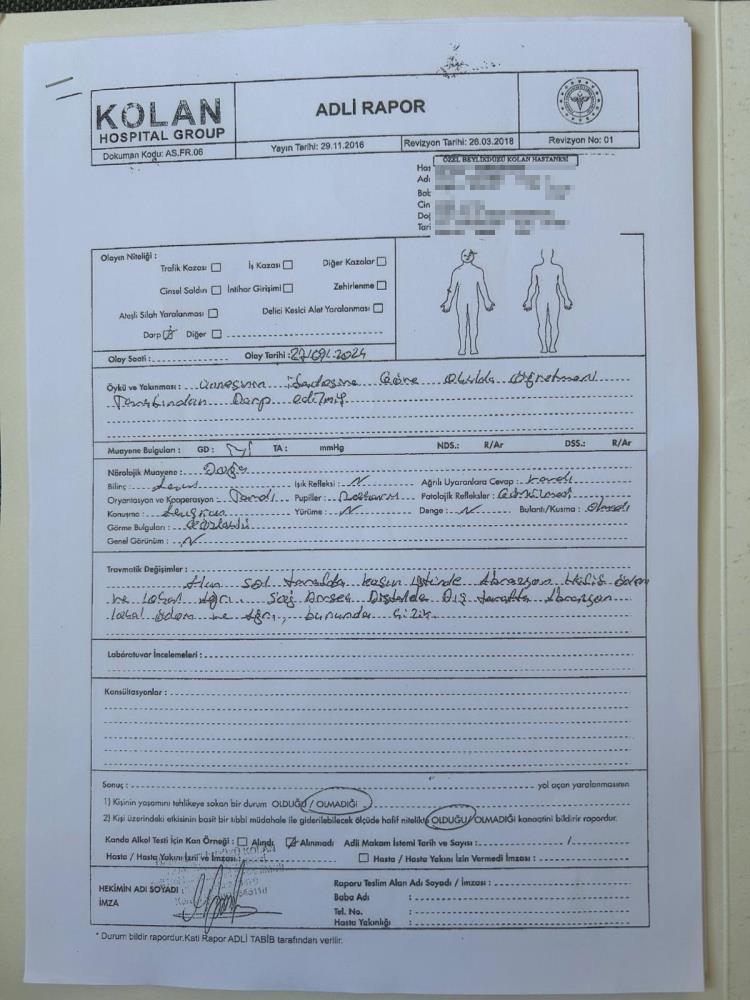 KOLAN
HOSPITAL GROUP
Dokuman Kodu: AS.FR.06
ADLİ RAPOR
Yayın Tarihi: 29.11.2016
Revizyon Tarihi: 26.03.2018
Revizyon No: 01
ÖZEL BEYLİKDÜZÜ KOLAN HASTANESİ
Olayın Niteliği :
Trafik Kazası İş Kazası Diğer Kazalar
Cinsel Saldırı İntihar Girişimi Zehirlenme
Ateşli Silah Yaralanması Delici Kesici Alet Yaralanması
Darp Diğer
Olay Saati : Olay Tarihi : 27/09/2024
Öykü ve Yakınması : Annesinin ifadesine Göre okulda öğretmeni
Tarafından Darp edilmiş
Muayene Bulguları : GD : TA : mmHg NDS.: R/Ar DSS.: R/Ar
Nörolojik Muayene : Doğal
Bilinç : Işık Refleksi : N Ağrılı Uyaranlara Cevap :
Oryantasyon ve Kooperasyon : Pupiller : Patolojik Refleksler :
Konuşma : Yürüme : N Denge : N Bulantı/Kusma : Olmadı
Görme Bulguları :
Genel Görünüm : N
Travmatik Değişimler :
Alın sol tarafda kaşın üstünde Abrazyon Hafif ödem
ve lokal Ağrı. Sağ Distalde Dış tarafta Abrazyon
lokal ödem ve Ağrı, burunda çizik
Labaratuvar İncelemeleri :
Konsültasyonlar :
Sonuç : yol açan yaralanmasının
1) Kişinin yaşamını tehlikeye sokan bir durum OLDUĞU / OLMADIĞI
2) Kişi üzerindeki etkisinin basit bir tıbbi müdahale ile giderilebilecek ölçüde hafif nitelikte OLDUĞU / OLMADIĞI kanaatini bildirir rapordur.
Kanda Alkol Testi İçin Kan Örneği : Alındı Alınmadı Adli Makam İstemi Tarih ve Sayısı : /
Hasta / Hasta Yakını İzni ve İmzası : Hasta / Hasta Yakını İzin Vermedi İmzası :
HEKİMİN ADI SOYADI
İMZA
Raporu Teslim Alan Adı Soyadı / İmzası :
Baba Adı :
Tel. No. :
Hasta Yakınlığı :
* Durum bildir rapordur.Kati Rapor ADLİ TABİB tarafından verilir.